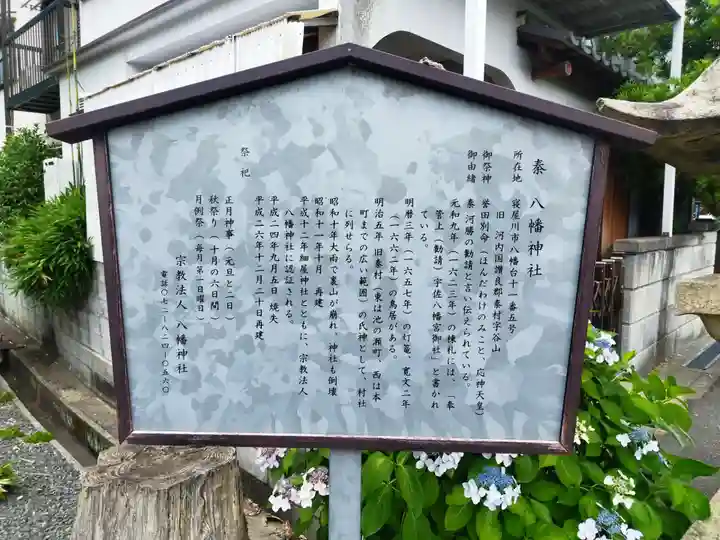 秦 八幡神社
所在地 寝屋川市八幡台十一番五号
旧 河内国讃良郡秦村字谷山
御祭神 誉田別命（ほんだわけのみこと、応神天皇）
御由緒 秦 河勝の勧請と言い伝えられている。
元和九年（一六二三年）の棟札には、「奉
管上（勧請）宇佐八幡宮御社」と書かれ
ている。
明暦三年（一六五七年）の灯篭、寛文二年
（一六六二年）の鳥居がある。
明治五年 旧秦村（東は池の瀬町、西は本
町までの広い範囲）の氏神として、村社
に列せらる。
昭和十年大雨で裏山が崩れ、神社も倒壊
昭和十一年十月 再建
平成十二年細屋神社とともに、宗教法人
八幡神社に認証される。
平成二四年九月五日 焼失
平成二六年十二月二十日再建
祭祀
正月神事（元旦と二日）
秋祭り（十月の六日間）
月例祭（毎月第一日曜日）
宗教法人 八幡神社
電話〇七二-八二四-〇五六〇